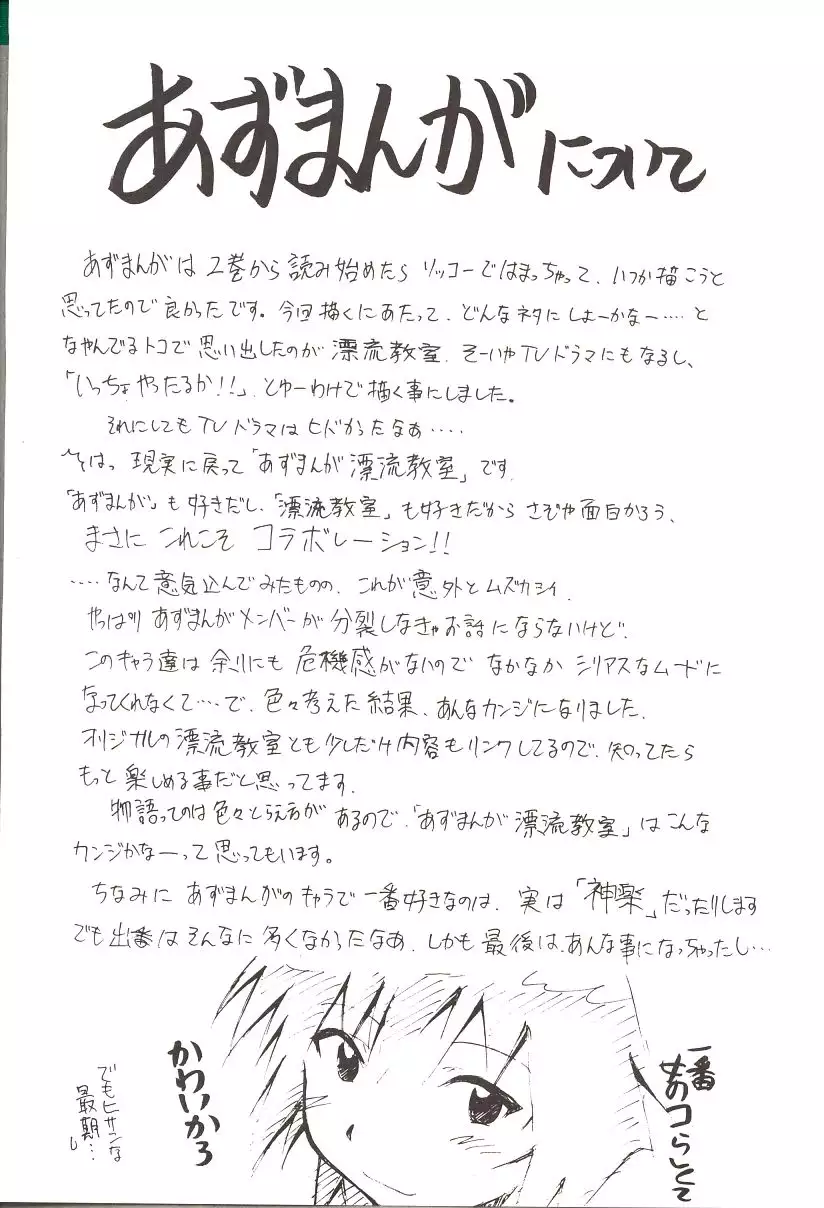 あずまんがについて
あずまんがは2巻から読み始めたらソッコーではまっちゃって、いつか描こうと
思ってたので良かったです。今回描くにあたって、どんなネタにしよーかなー……と
なやんでるトコで思い出したのが漂流教室、そーいやTVドラマにもなるし、
「いっちょやったるか!!」、とゆーわけで描く事にしました。
それにしてもTVドラマはヒドかったなあ‥‥
現実に戻って「あずまんが漂流教室」です
「あずまんが」も好きだし、「漂流教室」も好きだからさぞや面白かろう、
まさにこれこそコラボレーション!!
‥‥なんて意気込んでみたものの、これが意外とムズカシイ、
やっぱりあずまんがメンバーが分裂しなきゃお話にならないけど、
このキャラ達は余りにも危機感がないのでなかなかシリアスなムードに
なってくれなくて‥‥で、色々考えた結果、あんなカンジになりました、
オリジナルの漂流教室とも少しだけ内容もリンクしてるので、知ってたら
もっと楽しめる事だと思ってます、
物語ってのは色々とらえ方があるので、「あずまんが漂流教室」はこんな
カンジかなーって思ってもいます。
ちなみにあずまんがのキャラで一番好きなのは、実は「神楽」だったりします
でも出番はそんなに多くなかったなあ、しかも最後は、あんな事になっちゃったし…
一番
オコらしくて
かわいかろ
でもヒサンな
最期…